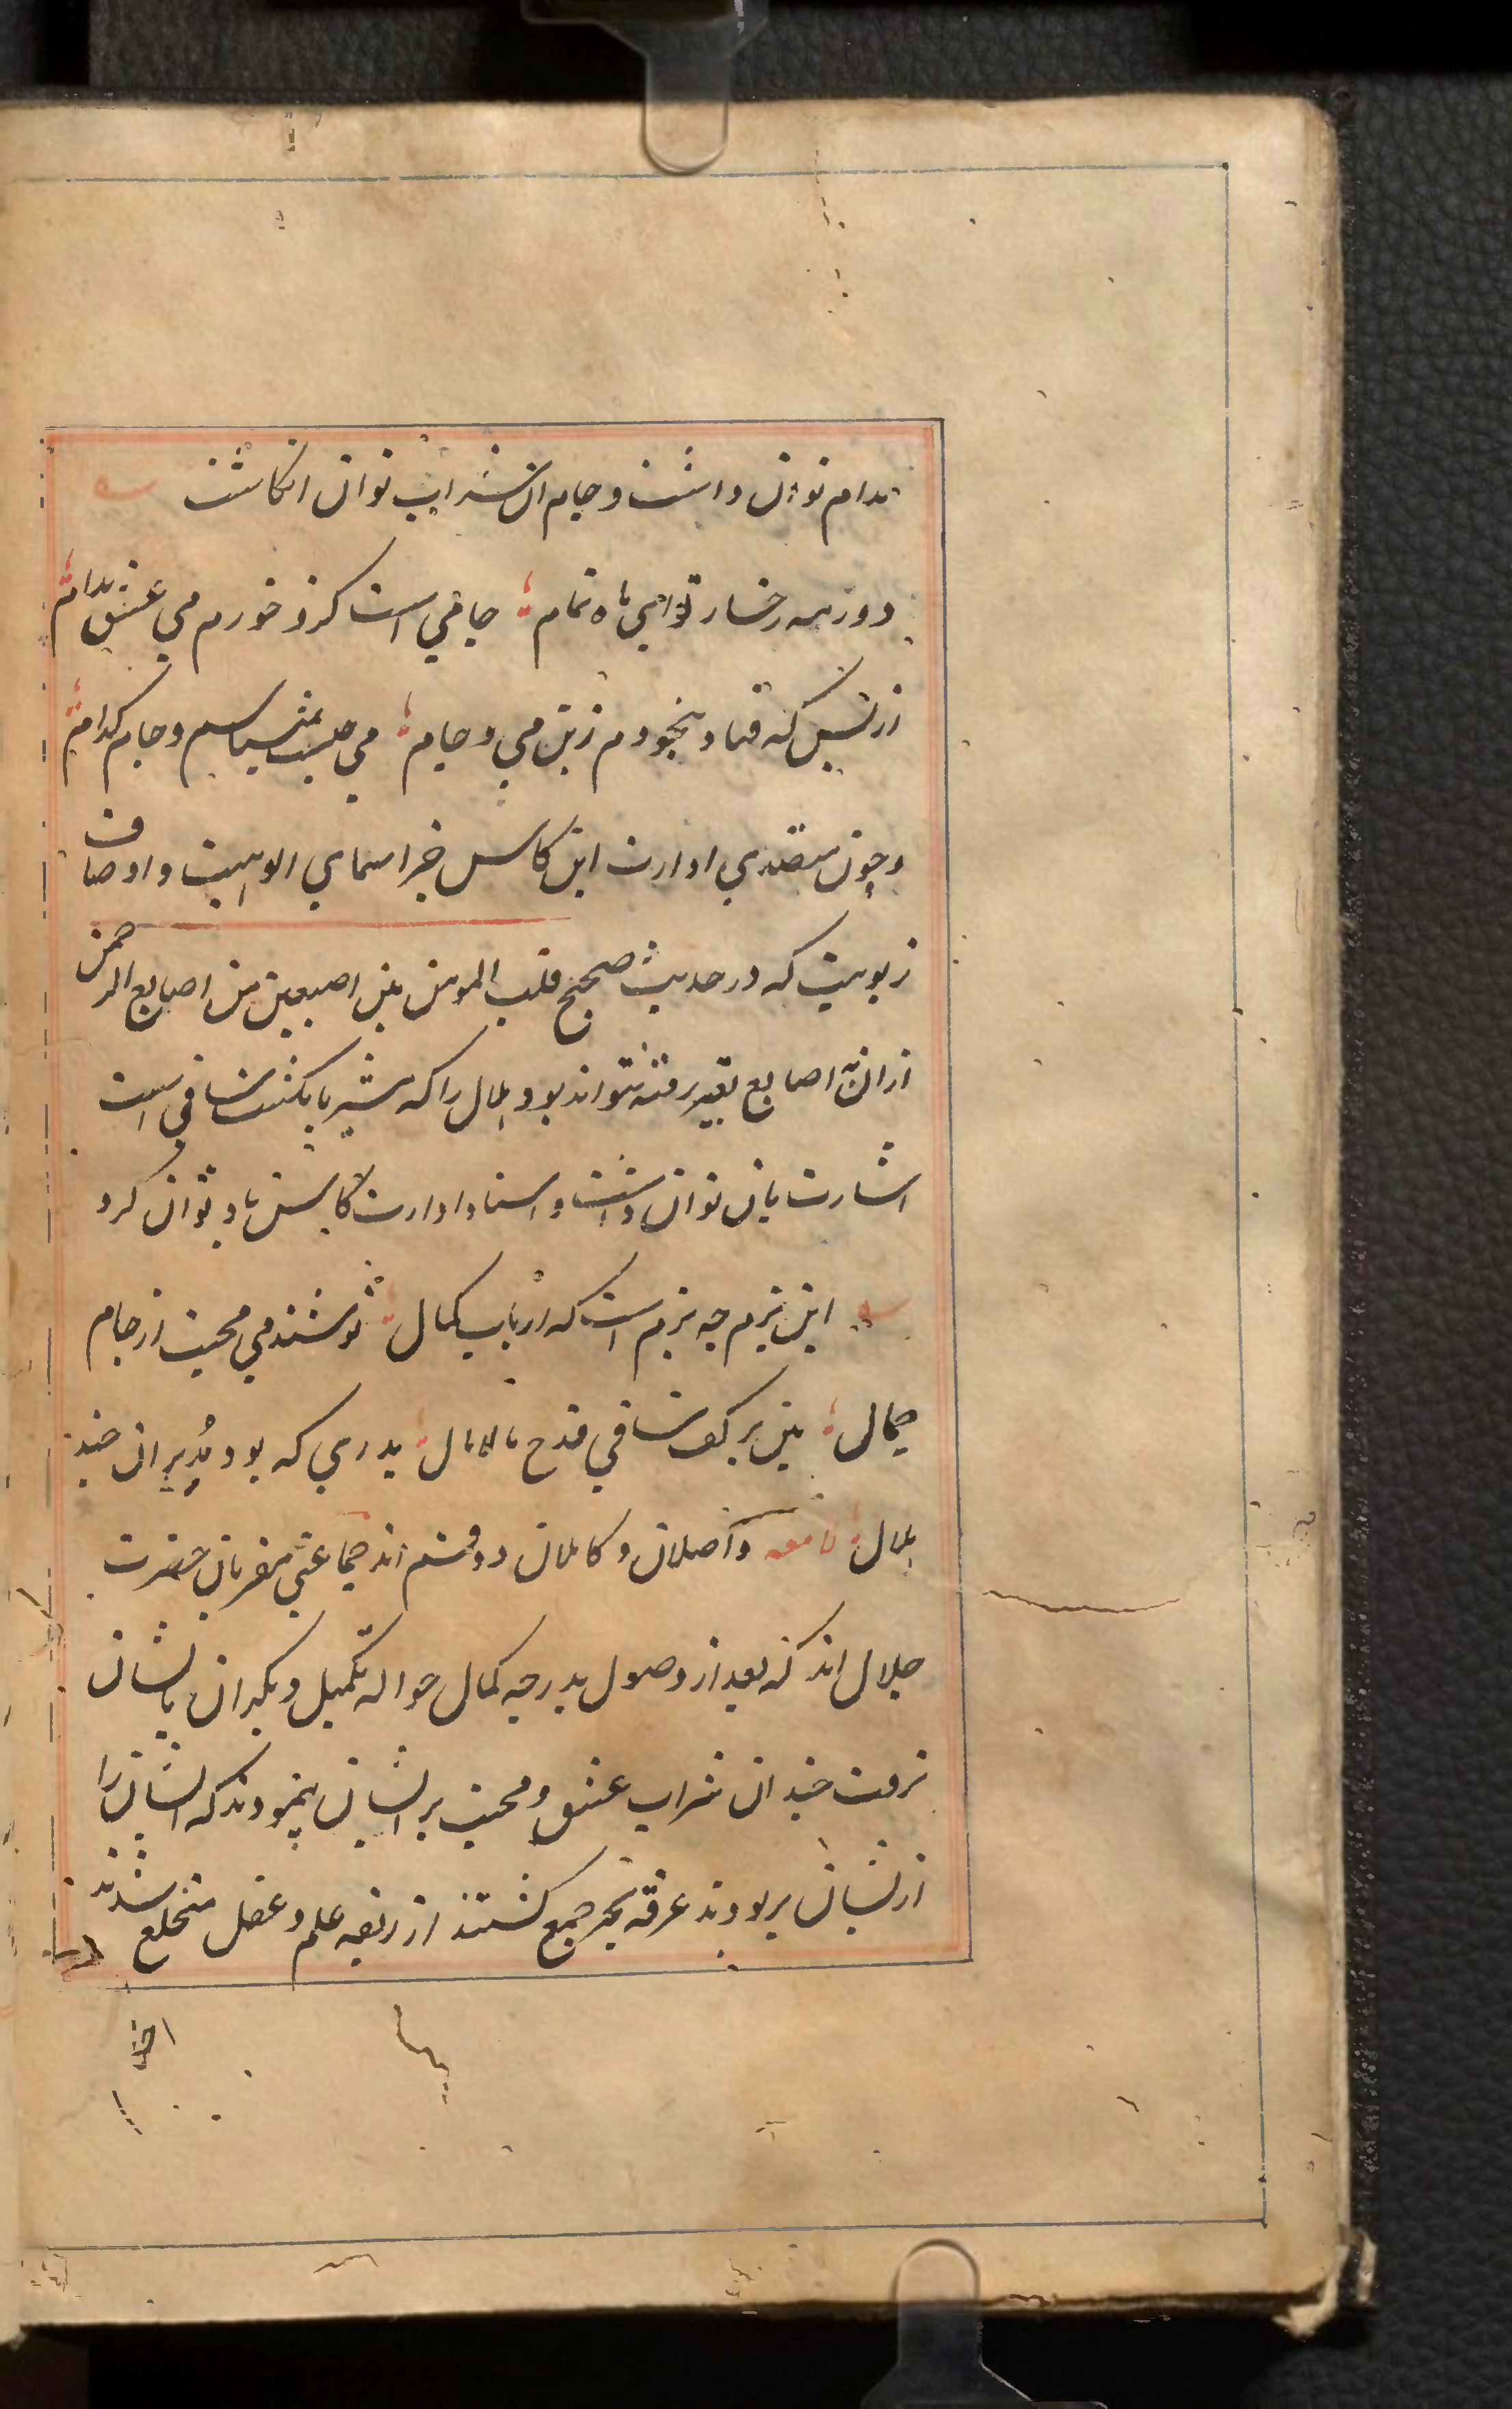 مدام توان داشت و جام ان شراب توان انکاشت
دور مه رخسار تو ای ماه تمام جامی است کزو خورم می عشق مدام
از بس که فتاد بیخودم زین می و جام می چیست نمی شناسم و جام کدام
و چون متصدی ادارت این کاس جز اسمای الوهیت و اوصاف
ربوبیت که در حدیث صحیح قلب المومن بین اصبعین من اصابع الرحمن
از ان به اصابع تعبیر رفته نتواند بود هلال را که مشیر بانکشت ساقی است
اشارت بان توان داشت و اسناد ادارت کاس باو توان کرد
این بزم چه بزم است که ارباب کمال نوشند می محبت از جام
جمال بین بر کف ساقی قدح مالامال بدری که بود مدیر ان چند
هلال لامعه واصلان و کاملان دو قسم اند جماعتی مقربان حضرت
جلال اند که بعد از وصول بدرجه کمال حواله تکمیل دیکران بایشان
نرفت چندان شراب عشق و محبت بر ایشان پیمودند که ایشان را
از ایشان بربودند غرقه بحر جمع کشتند از ربقه علم و عقل منخلع شدند